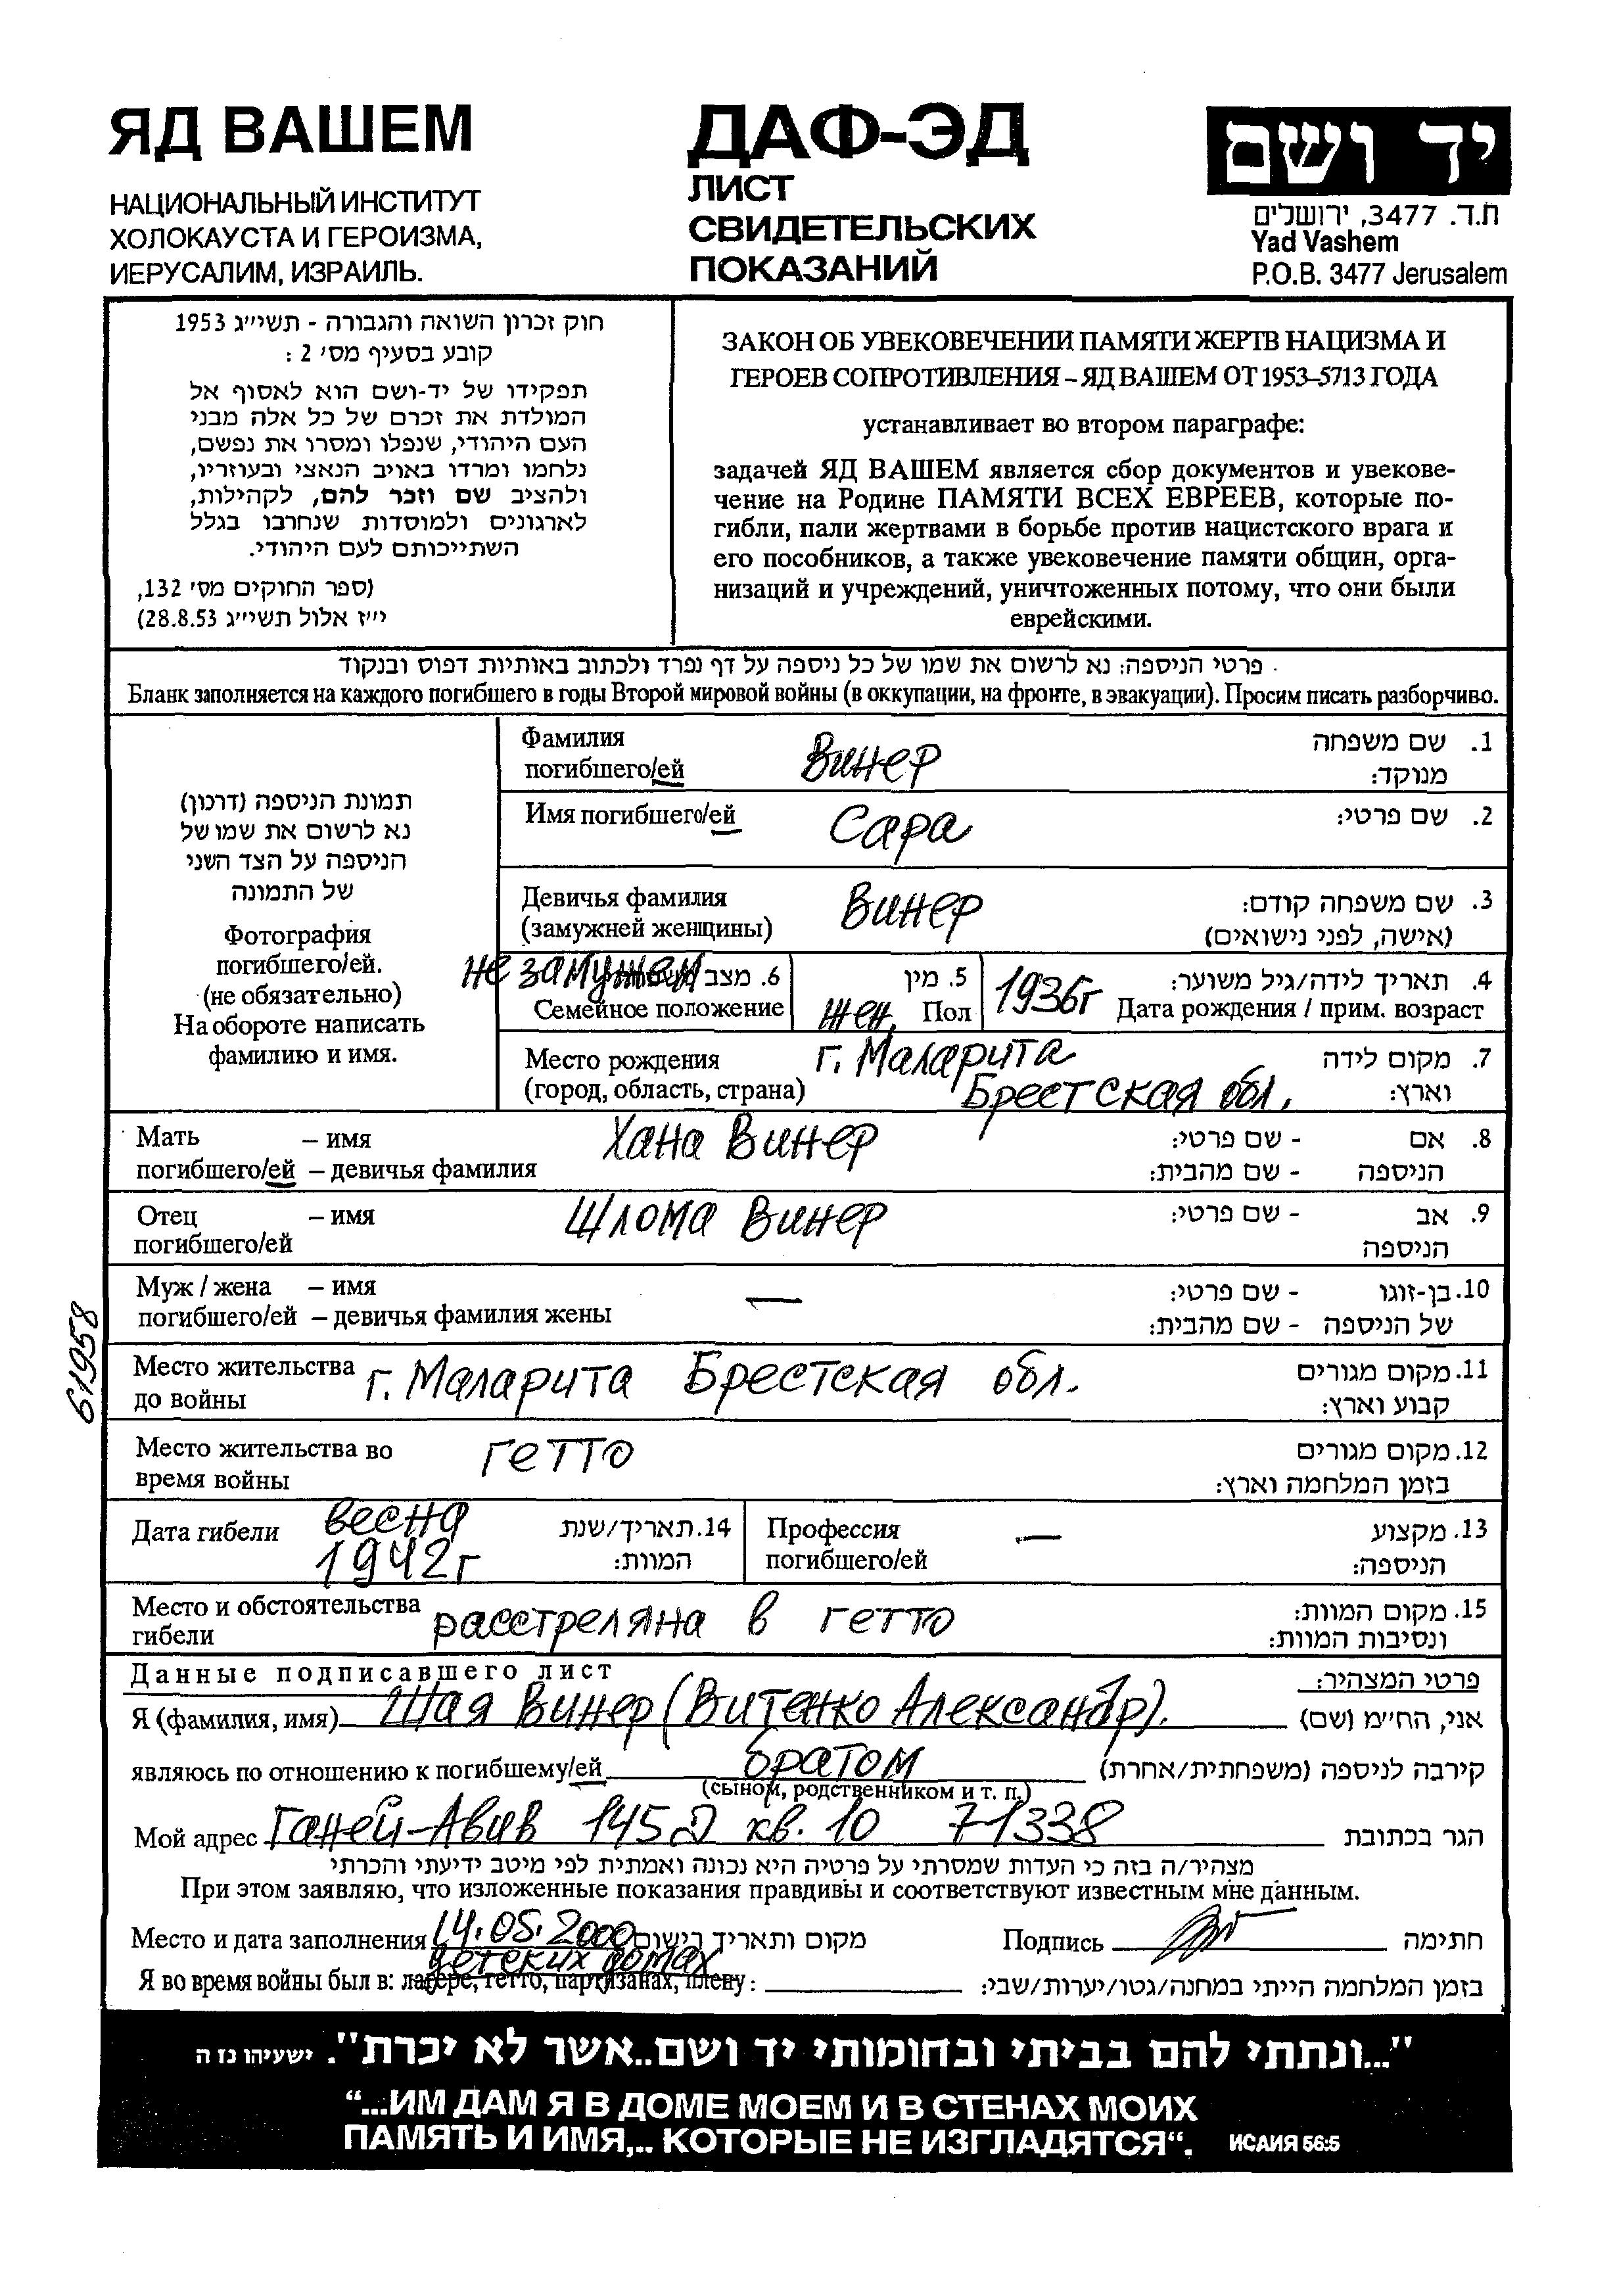 ЯД ВАШЕМ
НАЦИОНАЛЬНЫЙ ИНСТИТУТ
ХОЛОКАУСТА И ГЕРОИЗМА,
ИЕРУСАЛИМ, ИЗРАИЛЬ.
ДАФ-ЭД
ЛИСТ
СВИДЕТЕЛЬСКИХ
ПОКАЗАНИЙ
יד ושם
ת.ד. 3477, ירושלים
Yad Vashem
P.O.B. 3477 Jerusalem
חוק זכרון השואה והגבורה - תשי״ג 1953
קובע בסעיף מס׳ 2 :
תפקידו של יד-ושם הוא לאסוף אל
המולדת את זכרם של כל אלה מבני
העם היהודי, שנפלו ומסרו את נפשם,
נלחמו ומרדו באויב הנאצי ובעוזריו,
ולהציב שם וזכר להם, לקהילות,
לארגונים ולמוסדות שנחרבו בגלל
השתייכותם לעם היהודי.
(ספר החוקים מס׳ 132,
י״ז אלול תשי״ג 28.8.53)
ЗАКОН ОБ УВЕКОВЕЧЕНИИ ПАМЯТИ ЖЕРТВ НАЦИЗМА И
ГЕРОЕВ СОПРОТИВЛЕНИЯ – ЯД ВАШЕМ ОТ 1953–5713 ГОДА
устанавливает во втором параграфе:
задачей ЯД ВАШЕМ является сбор документов и увекове-
чение на Родине ПАМЯТИ ВСЕХ ЕВРЕЕВ, которые по-
гибли, пали жертвами в борьбе против нацистского врага и
его пособников, а также увековечение памяти общин, орга-
низаций и учреждений, уничтоженных потому, что они были
еврейскими.
פרטי הניספה: נא לרשום את שמו של כל ניספה על דף נפרד ולכתוב באותיות דפוס ובנקוד
Бланк заполняется на каждого погибшего в годы Второй мировой войны (в оккупации, на фронте, в эвакуации). Просим писать разборчиво.
תמונת הניספה (דרכון)
נא לרשום את שמו של
הניספה על הצד השני
של התמונה
Фотография
погибшего/ей.
(не обязательно)
На обороте написать
фамилию и имя.
Фамилия
погибшего/ей Винер
1. שם משפחה
מנוקד:
Имя погибшего/ей Сара
2. שם פרטי:
Девичья фамилия
(замужней женщины) Винер
3. שם משפחה קודם:
(אישה, לפני נישואים)
не замужем 6. מצב
Семейное положение
5. מין
жен. Пол
1936г
4. תאריך לידה/גיל משוער:
Дата рождения / прим. возраст
Место рождения г. Маларита
(город, область, страна) Брестская обл.
7. מקום לידה
וארץ:
Мать – имя Хана Винер
погибшего/ей – девичья фамилия
8. אם - שם פרטי:
הניספה - שם מהבית:
Отец – имя Шлома Винер
погибшего/ей
9. אב - שם פרטי:
הניספה
Муж / жена – имя —
погибшего/ей – девичья фамилия жены
10. בן-זוגו - שם פרטי:
של הניספה - שם מהבית:
61958
Место жительства г. Маларита Брестская обл.
до войны
11. מקום מגורים
קבוע וארץ:
Место жительства во гетто
время войны
12. מקום מגורים
בזמן המלחמה וארץ:
Дата гибели весна
1942г
14. תאריך/שנת
המוות:
Профессия —
погибшего/ей
13. מקצוע
הניספה:
Место и обстоятельства расстреляна в гетто
гибели
15. מקום המוות:
ונסיבות המוות:
Данные подписавшего лист פרטי המצהיר:
Я (фамилия, имя) Шая Винер (Витенко Александр). אני, הח״מ (שם)
являюсь по отношению к погибшему/ей братом קירבה לניספה (משפחתית/אחרת)
(сыном, родственником и т. п.)
Мой адрес Ганей-Авив 145 кв. 10 71338 הגר בכתובת
מצהיר/ה בזה כי העדות שמסרתי על פרטיה היא נכונה ואמתית לפי מיטב ידיעתי והכרתי
При этом заявляю, что изложенные показания правдивы и соответствуют известным мне данным.
Место и дата заполнения 14.05.2000 מקום ותאריך רישום Подпись חתימה
детских домах
Я во время войны был в: лагере, гетто, партизанах, плену: בזמן המלחמה הייתי במחנה/גטו/יערות/שבי:
"...ונתתי להם בביתי ובחומותי יד ושם..אשר לא יכרת". ישעיהו נז ה
“...ИМ ДАМ Я В ДОМЕ МОЕМ И В СТЕНАХ МОИХ
ПАМЯТЬ И ИМЯ,.. КОТОРЫЕ НЕ ИЗГЛАДЯТСЯ“. ИСАИЯ 56:5